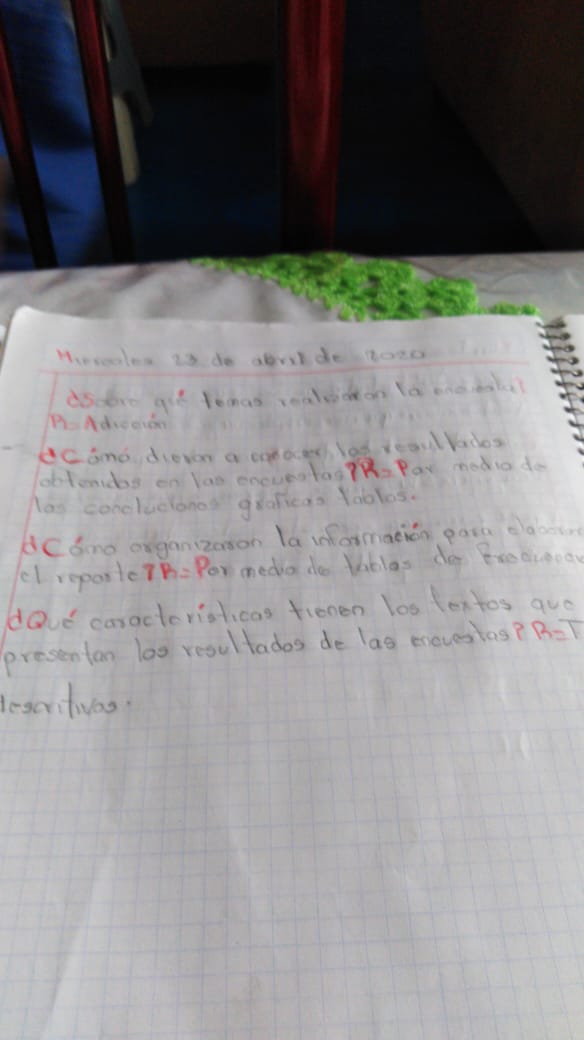 Miercoles 29 de abril de 2020
¿Sobre qué temas realizaron la encuesta?
R= Adicción
¿Cómo dieron a conocer los resultados
obtenidos en las encuestas? R= Por medio de
las conclucionos graficas tablas.
¿Cómo organizaron la información para elaborar
el reporte? R= Por medio de tablas de
¿Qué caracteristicas tienen los textos que
presentan los resultados de las encuestas? R= T
descritivos.